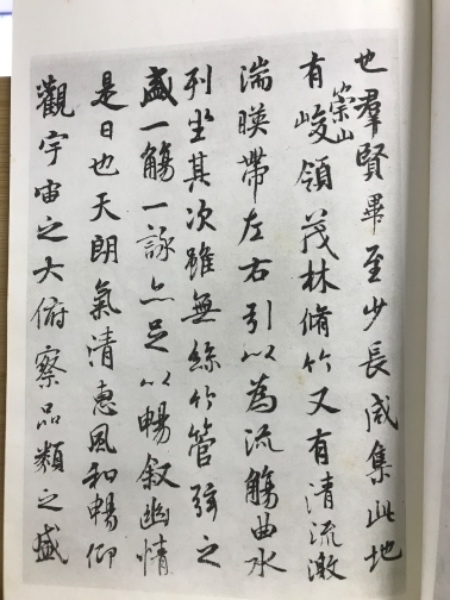 也羣賢畢至少長咸集此地
有崇山峻領茂林脩竹又有清流激
湍暎帶左右引以為流觴曲水
列坐其次雖無絲竹管弦之
盛一觴一詠亦足以暢敘幽情
是日也天朗氣清惠風和暢仰
觀宇宙之大俯察品類之盛